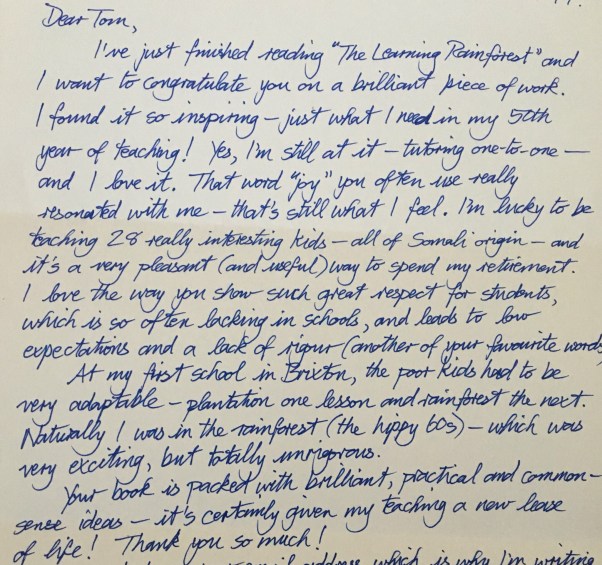 Dear Tom,
I've just finished reading "The Learning Rainforest" and
I want to congratulate you on a brilliant piece of work.
I found it so inspiring – just what I need in my 50th
year of teaching! Yes, I'm still at it – tutoring one-to-one –
and I love it. That word "joy" you often use really
resonated with me – that's still what I feel. I'm lucky to be
teaching 28 really interesting kids – all of Somali origin – and
it's a very pleasant (and useful) way to spend my retirement.
I love the way you show such great respect for students,
which is so often lacking in schools, and leads to low
expectations and a lack of rigour (another of your favourite words
At my first school in Brixton, the poor kids had to be
very adaptable – plantation one lesson and rainforest the next.
Naturally I was in the rainforest (the hippy 60s) – which was
very exciting, but totally unrigorous.
Your book is packed with brilliant, practical and common-
sense ideas – it's certainly given my teaching a new lease
of life! Thank you so much!
address which is why I'm writing